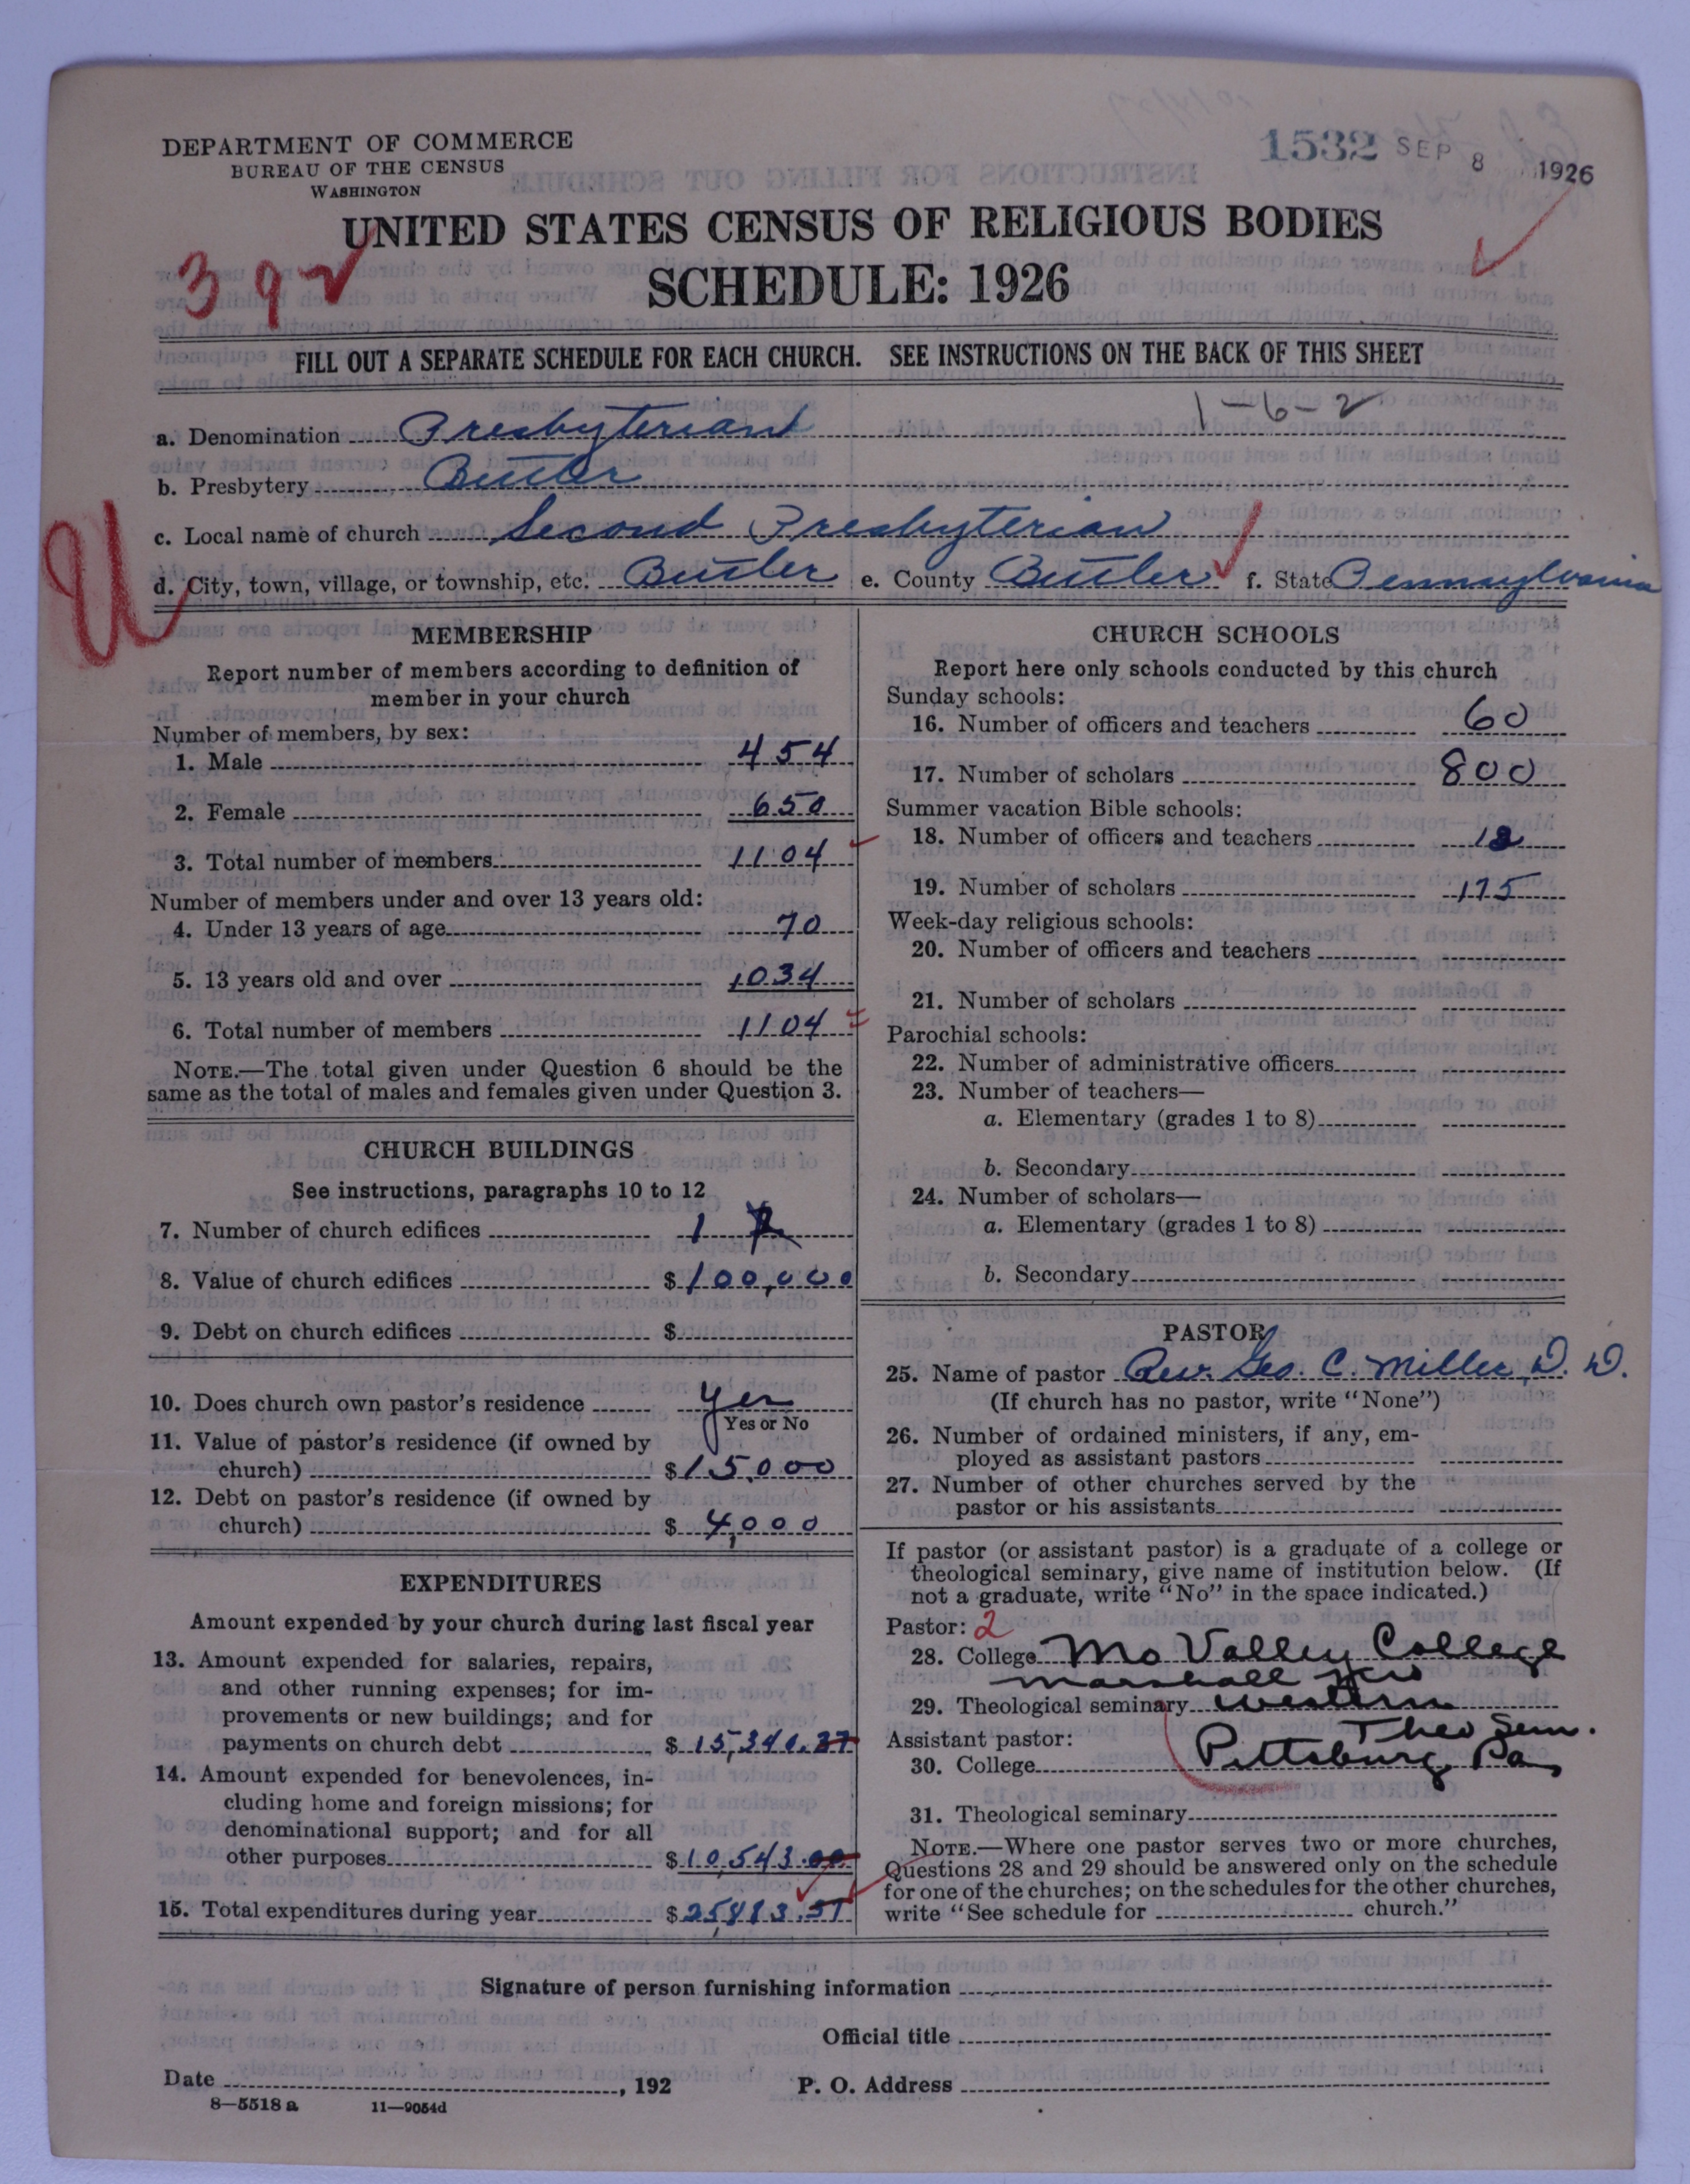 1532 SEP 8 1926
DEPARTMENT OF COMMERCE
BUREAU OF THE CENSUS
WASHINGTON
UNITED STATES CENSUS OF RELIGIOUS BODIES
SCHEDULE: 1926
FILL OUT A SEPARATE SCHEDULE FOR EACH CHURCH. SEE INSTRUCTIONS ON THE BACK OF THIS SHEET
1-6-2
a. Denomination Presbyterian
b. Presbytery Butler
c. Local name of church Second Presbyterian
d. City, town, village, or township, etc. Butler e. County Butler f. State Pennsylvania
MEMBERSHIP
Report number of members according to definition of
member in your church
Number of members, by sex:
1. Male 454
2. Female 650
3. Total number of members 1104
Number of members under and over 13 years old:
4. Under 13 years of age 70
5. 13 years old and over 1034
6. Total number of members 1104
NOTE.—The total given under Question 6 should be the
same as the total of males and females given under Question 3.
CHURCH BUILDINGS
See instructions, paragraphs 10 to 12
7. Number of church edifices 1
8. Value of church edifices $100,000
9. Debt on church edifices $
10. Does church own pastor's residence yes
Yes or No
11. Value of pastor's residence (if owned by
church) $15,000
12. Debt on pastor's residence (if owned by
church) $4,000
EXPENDITURES
Amount expended by your church during last fiscal year
13. Amount expended for salaries, repairs,
and other running expenses; for im-
provements or new buildings; and for
payments on church debt $
14. Amount expended for benevolences, in-
cluding home and foreign missions; for
denominational support; and for all
other purposes $10,543.00
15. Total expenditures during year $
CHURCH SCHOOLS
Report here only schools conducted by this church
Sunday schools:
16. Number of officers and teachers 60
17. Number of scholars 800
Summer vacation Bible schools:
18. Number of officers and teachers
19. Number of scholars 175
Week-day religious schools:
20. Number of officers and teachers
21. Number of scholars
Parochial schools:
22. Number of administrative officers
23. Number of teachers—
a. Elementary (grades 1 to 8)
b. Secondary
24. Number of scholars—
a. Elementary (grades 1 to 8)
b. Secondary
PASTOR
25. Name of pastor Rev. Geo. C. Miller, D. D.
(If church has no pastor, write "None")
26. Number of ordained ministers, if any, em-
ployed as assistant pastors
27. Number of other churches served by the
pastor or his assistants
If pastor (or assistant pastor) is a graduate of a college or
theological seminary, give name of institution below. (If
not a graduate, write "No" in the space indicated.)
Pastor: 2
28. College Mo Valley College
Marshall
29. Theological seminary Western
Theo Sem.
Assistant pastor:
Pittsburg Pa
30. College
31. Theological seminary
NOTE.—Where one pastor serves two or more churches,
Questions 28 and 29 should be answered only on the schedule
for one of the churches; on the schedules for the other churches,
write "See schedule for church."
Signature of person furnishing information
Official title
Date , 192 P. O. Address
8—5518 a 11—9054d